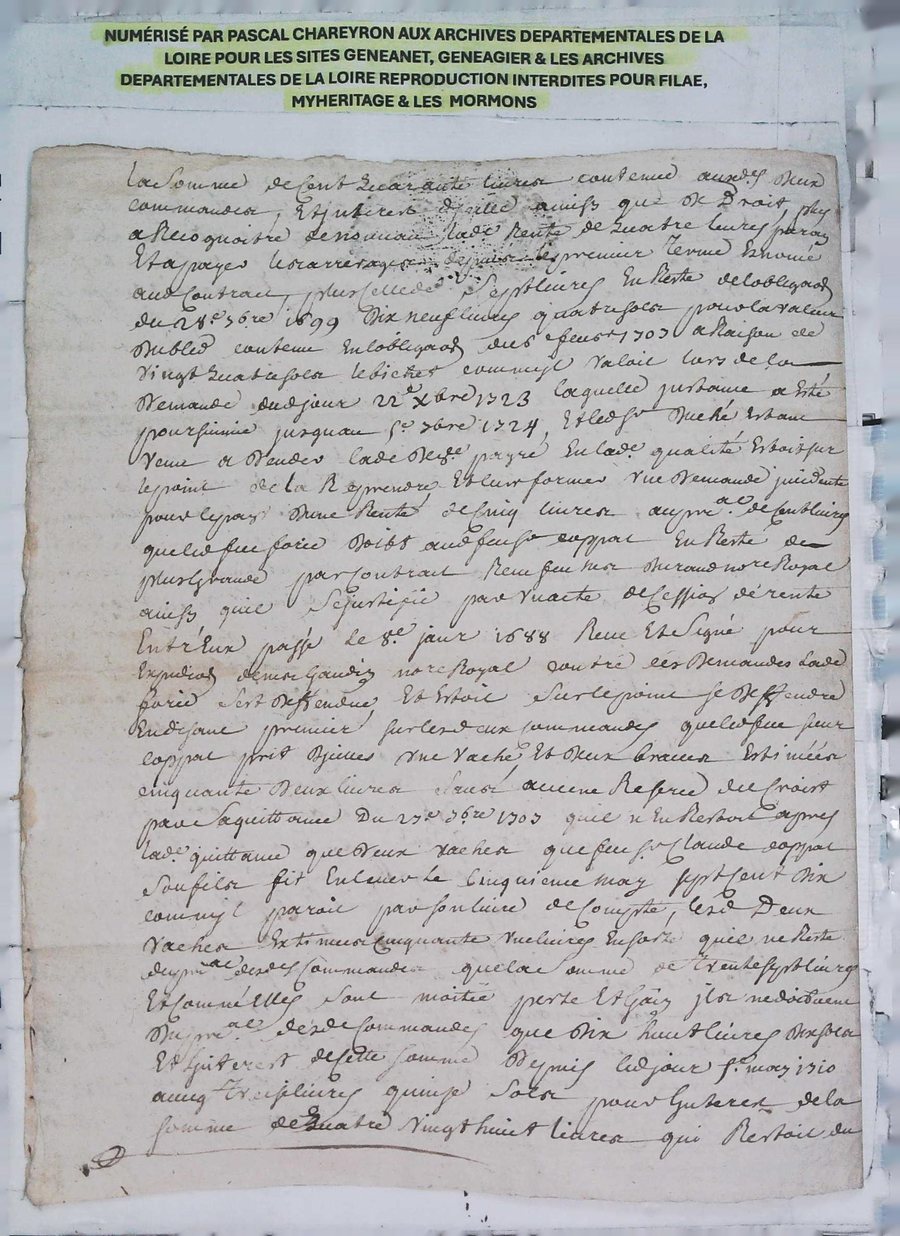 NUMÉRISÉ PAR PASCAL CHAREYRON AUX ARCHIVES DEPARTEMENTALES DE LA
LOIRE POUR LES SITES GENEANET, GENEAGIER & LES ARCHIVES
DEPARTEMENTALES DE LA LOIRE REPRODUCTION INTERDITES POUR FILAE,
MYHERITAGE & LES MORMONS
la somme de Cent Quarante livres contenue auxdes deux
commandes, et interest d'icelle ainsy que de Droit plus
a Recognoitre de nouveau lade Rente de Quatre livres
Et a payer les arrerages depuis le premier terme Enoncé
aud Contrat, plus celle de Sept livres En Reste de lobligaon
du 28e 7bre 1699 Dix neuf livres quatre sols pour la valeur
Dubled contenu En lobligaon du 6 feur 1703 a Raison de
Vingt Quatre sols le bichet comme jl Valoit lors de la
Demande dud jour 22e xbre 1723 laquelle jnstance a Esté
poursuivie jusquau 5e 7bre 1724, Et led sr Duché Estant
Venu a Deceder lade payre En lade qualité Estoit sur
le point de la Reprendre Et luy former Une Demande jncidente
pour Dune Rente de Cinq livres au pral de Cent livres
que led feu forie Doibt aud feu sr coppat En Reste de
plus Grande par Contrat Receu feu me Durand nore Royal
ainsy quil se justifie par Un acte de Cession de rente
Entr'Eux passé Le 8e janr 1688 Receu Et Signé pour
Expedion Gaudin nore Royal contre ces Demandes lade
forie sest Deffendue Et Estoit sur le point se Deffendre
En disant premier sur les deux commandes que led feu sieur
coppat prit D'jcelles une Vache Et Deux braves Estimées
cinquante Deux livres sans aucune Reserve du Croist
par sa quittance Du 27e 7bre 1707 quil n'En Restoit apres
lade quittance que Deux Vaches que feu sr Claude coppat
son fils fit Enlever le Cinquieme may sept Cent Dix
comme jl paroit par son livre de Compte, lesd Deux
Vaches Extimées Cinquante Une livres En sorte quil ne Reste
du pral desdes Commandes que la somme de Trente sept livres
Et comme Elles sont moitié perte Et Gain jls ne doibvent
Du pral desdes Commandes que Dix huit livres Dix sols
Et Jnterest de Cette somme Depuis led jour 5e may 1710
avec Treise livres quinse sols pour Jnterest de la
somme de Quatre Vingt huit livres qui Restoit du